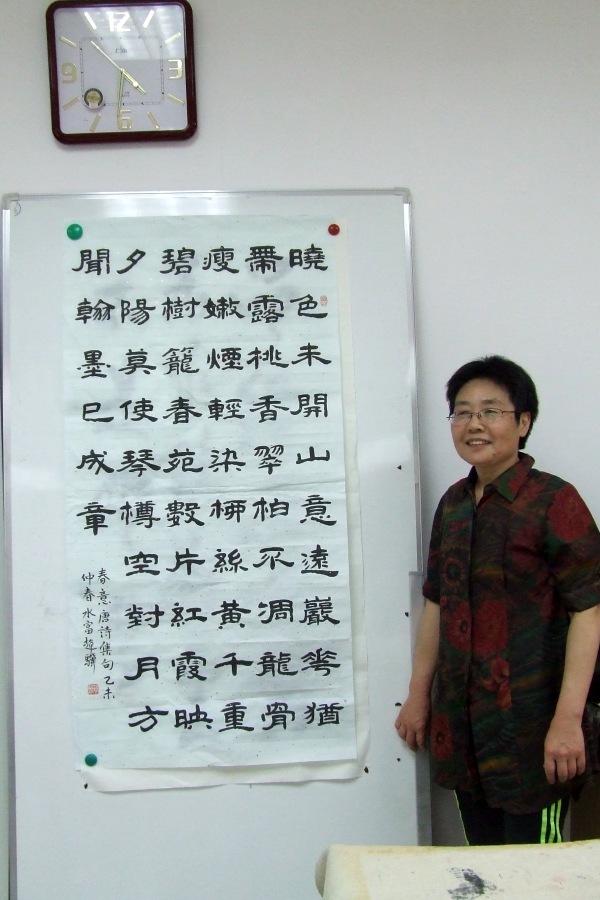 曉色未開山意遠巖花猶
帶露桃香翠柏不凋龍骨
瘦嫩煙輕染柳絲黃千重
碧樹籠春苑數片紅霞映
夕陽莫使琴樽空對月方
聞翰墨已成章
春意唐詩集句乙未
仲春水富趙
9
3
6